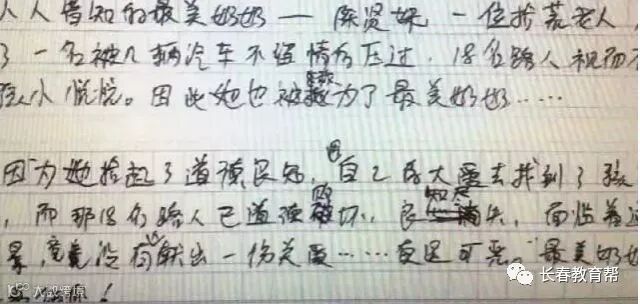 人人皆知的最美奶奶——陈贤妹,一位拾荒老人
了一名被几辆冷车不留情的压过,18名路人视而不
小悦悦。因此她也被称为了最美奶奶……
因为她捡起了道德良知,用自己的大爱去找到了
,而那18名路人已道德败坏,良知丧失,面临着这
景,竟没有献出一份关爱……真是可恶“最美奶奶
长春教育帮